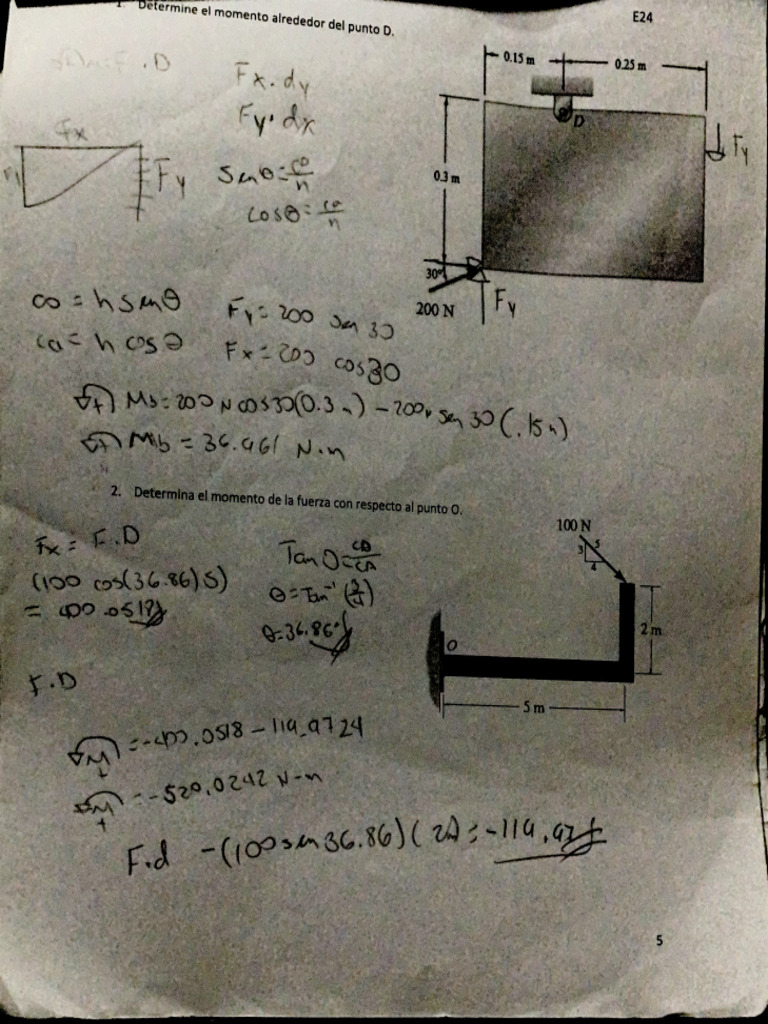 1. Determine el momento alrededor del punto D.
E24
F.D
Fx.dy
Fy.dx
0.15 m
0.25 m
D
Fy
0.3 m
Fx
Fy
Senθ = co/h
cosθ = ca/h
30°
200 N
Fy
co = h senθ
ca = h cosθ
Fy = 200 sen 30
Fx = 200 cos30
+ Mb = 200 N cos30(0.3 m) - 200N sen 30 (.15m)
+ Mb = 36.961 N.m
2. Determina el momento de la fuerza con respecto al punto O.
100 N
3
5
4
2 m
O
5 m
Fx = F.D
(100 cos(36.86)5)
= 400.0518
Tan θ = CO/CA
θ = Tan⁻¹ (3/4)
θ = 36.86°
F.D
+ M = -400.0518 - 119.9724
+ M = -520.0242 N-m
F.d -(100 sen 36.86)(2) = -119.97
5